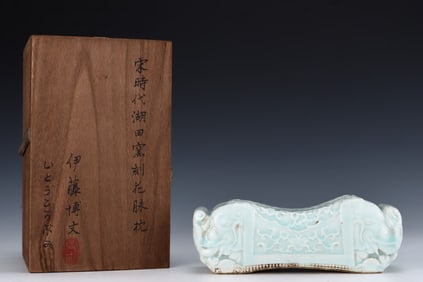 宋時代湖田窯刻花脉枕
伊藤博文
いとうひろぶみ